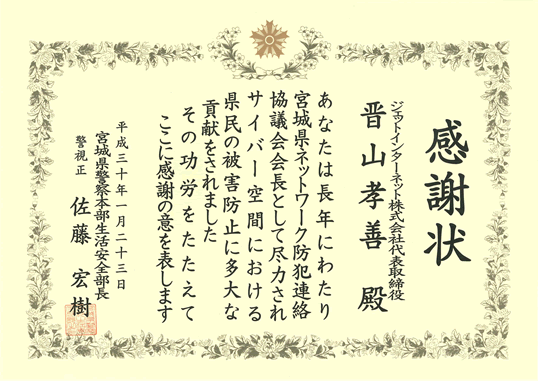 感謝状
ジェットインターネット株式会社代表取締役
晋山孝善 殿
あなたは長年にわたり
宮城県ネットワーク防犯連絡
協議会会長として尽力され
サイバー空間における
県民の被害防止に多大な
貢献をされました
その功労をたたえて
ここに感謝の意を表します
平成三十年一月二十三日
宮城県警察本部生活安全部長
警視正 佐藤宏樹